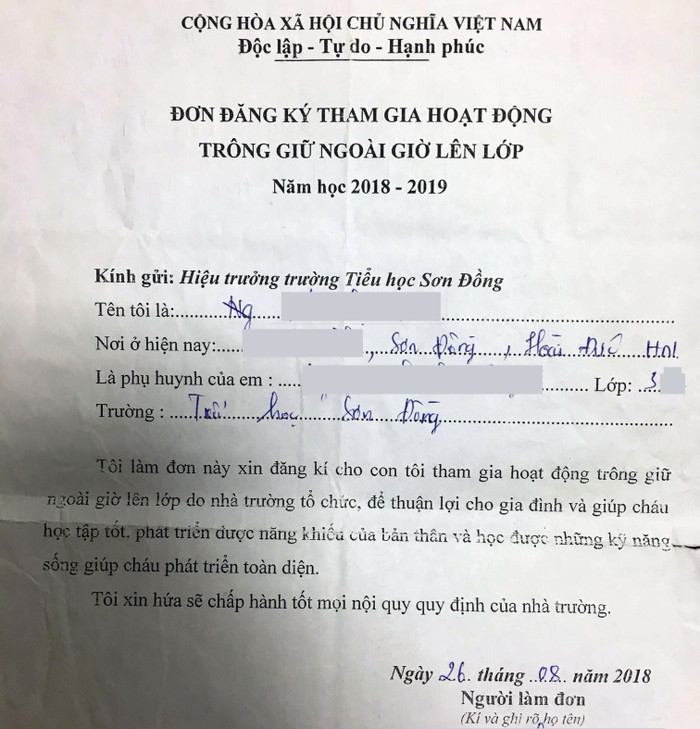 CỘNG HÒA XÃ HỘI CHỦ NGHĨA VIỆT NAM
Độc lập - Tự do - Hạnh phúc
ĐƠN ĐĂNG KÝ THAM GIA HOẠT ĐỘNG
TRÔNG GIỮ NGOÀI GIỜ LÊN LỚP
Năm học 2018 - 2019
Kính gửi: Hiệu trưởng trường Tiểu học Sơn Đồng
Tên tôi là:.......Ng
Nơi ở hiện nay:...., Sơn Đồng, Hoài Đức HN
Là phụ huynh của em : ..... Lớp: ..3
Trường : ...Tiểu học Sơn Đồng
Tôi làm đơn này xin đăng kí cho con tôi tham gia hoạt động trông giữ
ngoài giờ lên lớp do nhà trường tổ chức, để thuận lợi cho gia đình và giúp cháu
học tập tốt, phát triển được năng khiếu của bản thân và học được những kỹ năng
sống giúp cháu phát triển toàn diện.
Tôi xin hứa sẽ chấp hành tốt mọi nội quy quy định của nhà trường.
Ngày 26. tháng ..08.. năm 2018
Người làm đơn
(Kí và ghi rõ họ tên)